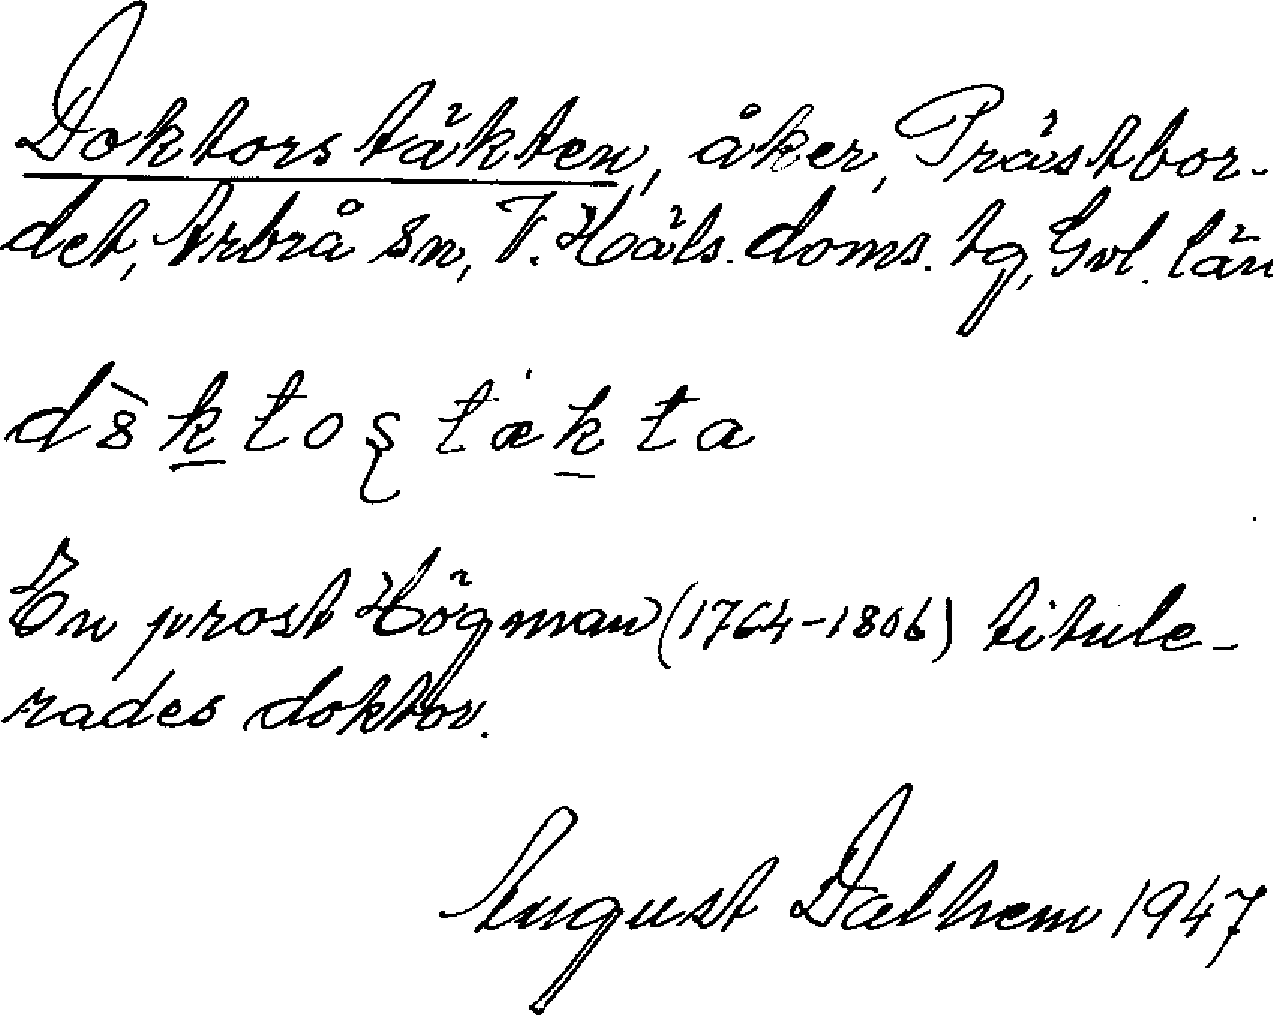 Doktorstäkten, åker, Prästbor-
det, Arbrå sn, V. Häls. doms. tg, Gvl. län
En prost Högman (1764-1806) titule-
rades doktor.
August Dalhem 1947